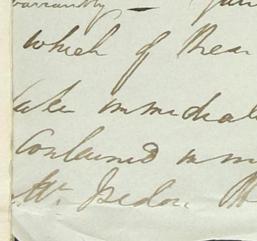 warrantly —
which of these
take immediat
Contained in m
Mr. Isidor